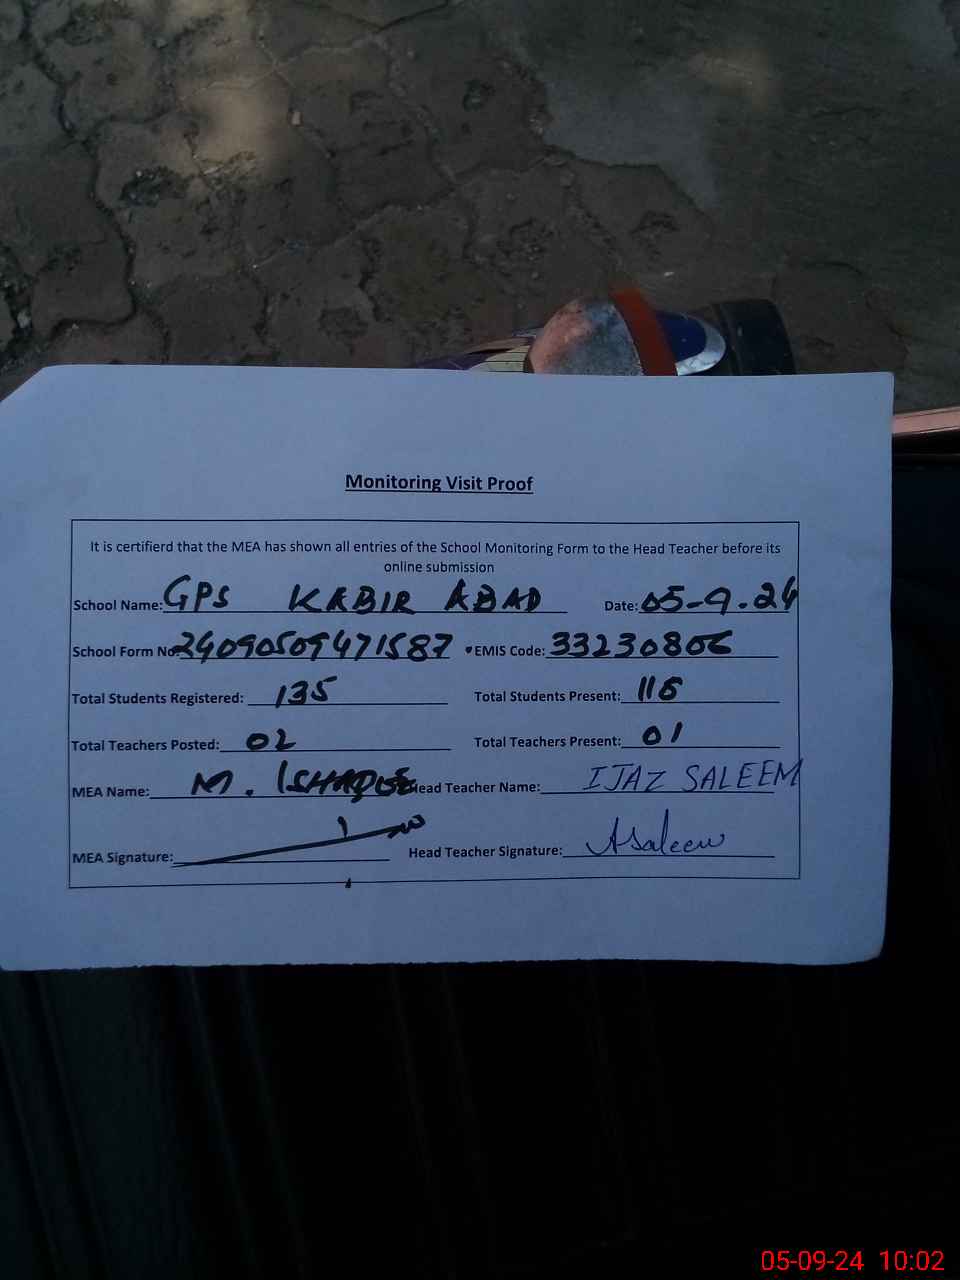 Monitoring Visit Proof
It is certifierd that the MEA has shown all entries of the School Monitoring Form to the Head Teacher before its
online submission
School Name: GPS KABIR ABAD Date: 05-9-24
School Form No 24090509471587 EMIS Code: 33230806
Total Students Registered: 135 Total Students Present: 116
Total Teachers Posted: 02 Total Teachers Present: 01
MEA Name: M. ISHAQUE Head Teacher Name: IJAZ SALEEM
MEA Signature: Head Teacher Signature: Asaleem
05-09-24 10:02